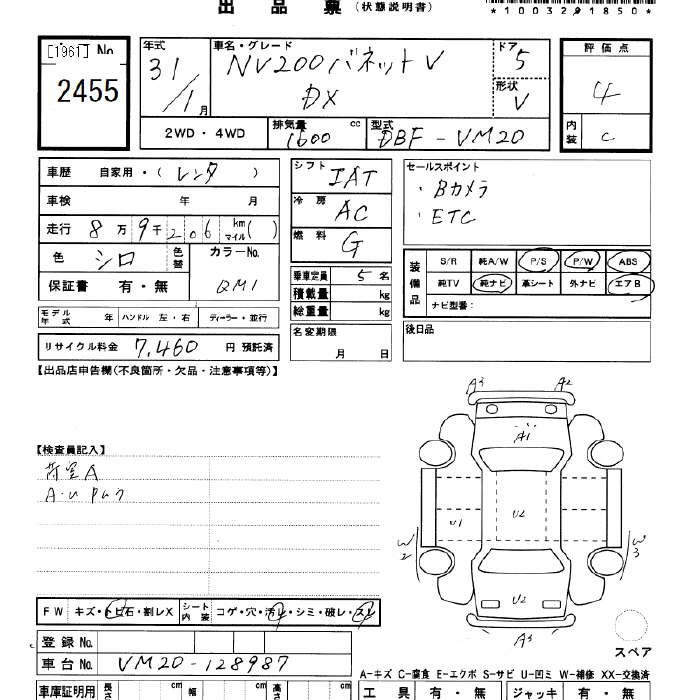 出 品 票 (状態説明書)
*1003291850*
[1961] No
2455
年式 31/1月
車名・グレード NV200バネットV
DX
ドア 5
形状 V
評価点
4
内装 C
2WD・4WD
排気量 1600 cc
型式 DBF-VM20
車歴 自家用・(レンタ)
車検 年 月
走行 8万9千206 km マイル( )
色 シロ
色替
カラーNo. QM1
保証書 有・無
シフト IAT
冷房 AC
燃料 G
乗車定員 5名
積載量 kg
総重量 kg
セールスポイント
・Bカメラ
・ETC
装備品
S/R 純A/W P/S P/W ABS
純TV 純ナビ 革シート 外ナビ エアB
ナビ型番:
モデル年式 年 ハンドル 左・右 ディーラー・並行
名変期限
月 日
後日品
リサイクル料金 7,460 円 預託済
【出品店申告欄(不良箇所・欠品・注意事項等)】
A3 A2
A1
【検査員記入】
荷室A
A・U
U1 U2
W2 W3
U2
A3
FW キズ・トビ石・割レX
シート内装 コゲ・穴・汚レ・シミ・破レ・スレ
登録No.
車台No. VM20-128987
スペア
A-キズ C-腐食 E-エクボ S-サビ U-凹ミ W-補修 XX-交換済
車庫証明用 長さ cm 幅 cm 高さ cm
工具 有・無 ジャッキ 有・無